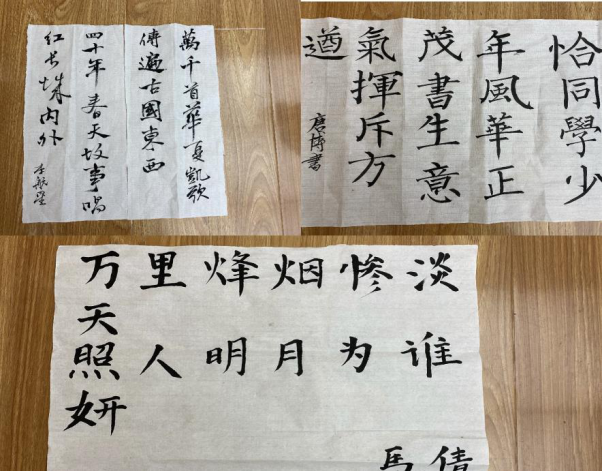 萬千首華夏凱歌
傳遍古國東西
四十年春天故事唱
红长城内外
恰同學少
年風華正
茂書生意
氣揮斥方
遒
唐博書
万里烽烟惨淡
天
照人明月为谁
妍
马倩